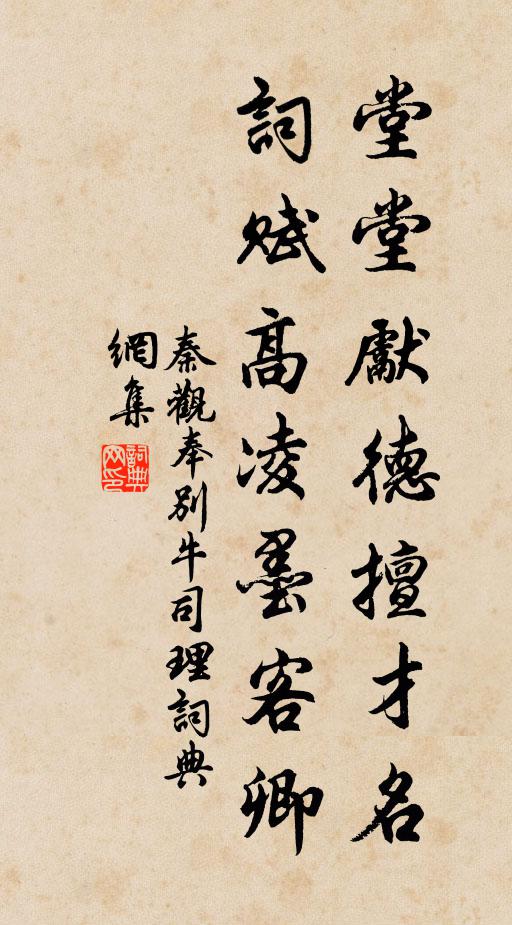 堂堂獻德擅才名
詞賦高凌墨客卿
秦觀奉別牛司理詞典
網集
詞典网印